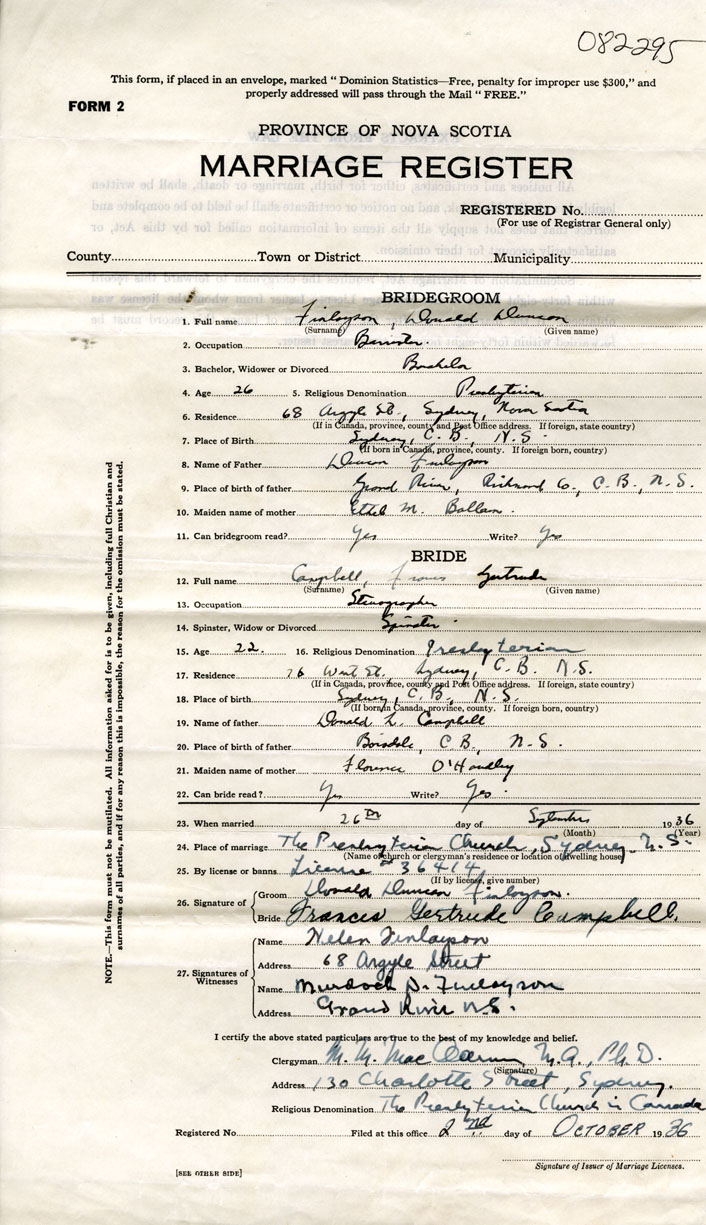 082295
This form, if placed in an envelope, marked " Dominion Statistics—Free, penalty for improper use $300," and
properly addressed will pass through the Mail " FREE."
FORM 2
PROVINCE OF NOVA SCOTIA
MARRIAGE REGISTER
REGISTERED No.
(For use of Registrar General only)
County Town or District Municipality
BRIDEGROOM
1. Full name Finlayson, Donald Duncan
(Surname) (Given name)
2. Occupation Barrister.
3. Bachelor, Widower or Divorced Bachelor
4. Age 26 5. Religious Denomination Presbyterian
6. Residence 68 Argyle St., Sydney, Nova Scotia
(If in Canada, province, county and Post Office address. If foreign, state country)
7. Place of Birth Sydney, C. B., N. S.
(If born in Canada, province, county. If foreign born, country)
8. Name of Father Duncan Finlayson
9. Place of birth of father Grand River, Richmond Co., C. B., N. S.
10. Maiden name of mother Ethel M. Ballam.
11. Can bridegroom read? Yes Write? Yes
BRIDE
12. Full name Campbell, Frances Gertrude
(Surname) (Given name)
13. Occupation Stenographer
14. Spinster, Widow or Divorced Spinster
15. Age 22. 16. Religious Denomination Presbyterian
17. Residence 76 West St., Sydney, C. B. N. S.
(If in Canada, province, county and Post Office address. If foreign, state country)
18. Place of birth Sydney, C. B., N. S.
(If born in Canada, province, county. If foreign born, country)
19. Name of father Donald L. Campbell
20. Place of birth of father Boisdale, C. B., N. S.
21. Maiden name of mother Florence O'Handley
22. Can bride read? Yes Write? Yes.
23. When married 26th day of September 1936
(Month) (Year)
24. Place of marriage The Presbyterian Church, Sydney. N. S.
(Name of church or clergyman's residence or location of dwelling house)
25. By license or banns License # 36414
(If by license, give number)
26. Signature of Groom Donald Duncan Finlayson.
Bride Frances Gertrude Campbell.
27. Signatures of Witnesses
Name Helen Finlayson
Address 68 Argyle Street
Name Murdoch D. Finlayson
Address Grand River N.S.
I certify the above stated particulars are true to the best of my knowledge and belief.
Clergyman M. M. Mac M.A., Ph.D.
(Signature)
Address 130 Charlotte Street, Sydney.
Religious Denomination The Presbyterian Church in Canada
Registered No. Filed at this office 2nd day of OCTOBER 1936
Signature of Issuer of Marriage Licenses.
[SEE OTHER SIDE]
NOTE.—This form must not be mutilated. All information asked for is to be given, including full Christian and
surnames of all parties, and if for any reason this is impossible, the reason for the omission must be stated.